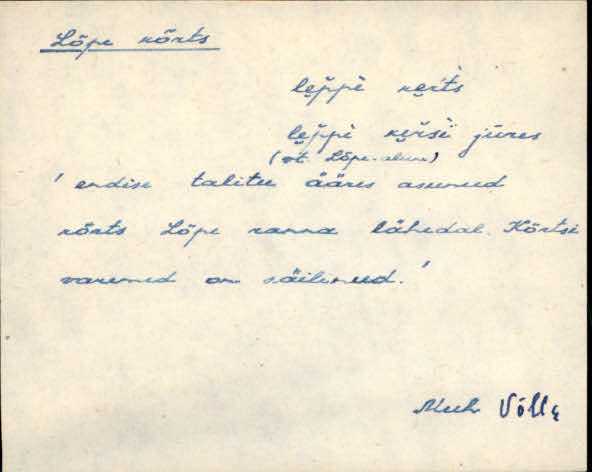 Lõpe kõrts
lęp̆pè kęr̀ts
lęp̆pè kęr̆si jūres
(vt. Lõpe-alune)
' endise talitee ääres asunud
kõrts Lõpe ranna lähedal. Kõrtsi
varemed on säilinud.'
Muh Võlla